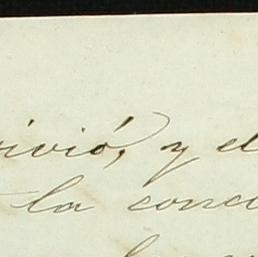 vivió, y el
la conc